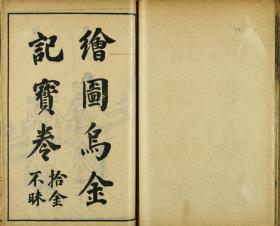 繪圖烏金
記寶卷
拾金
不昧